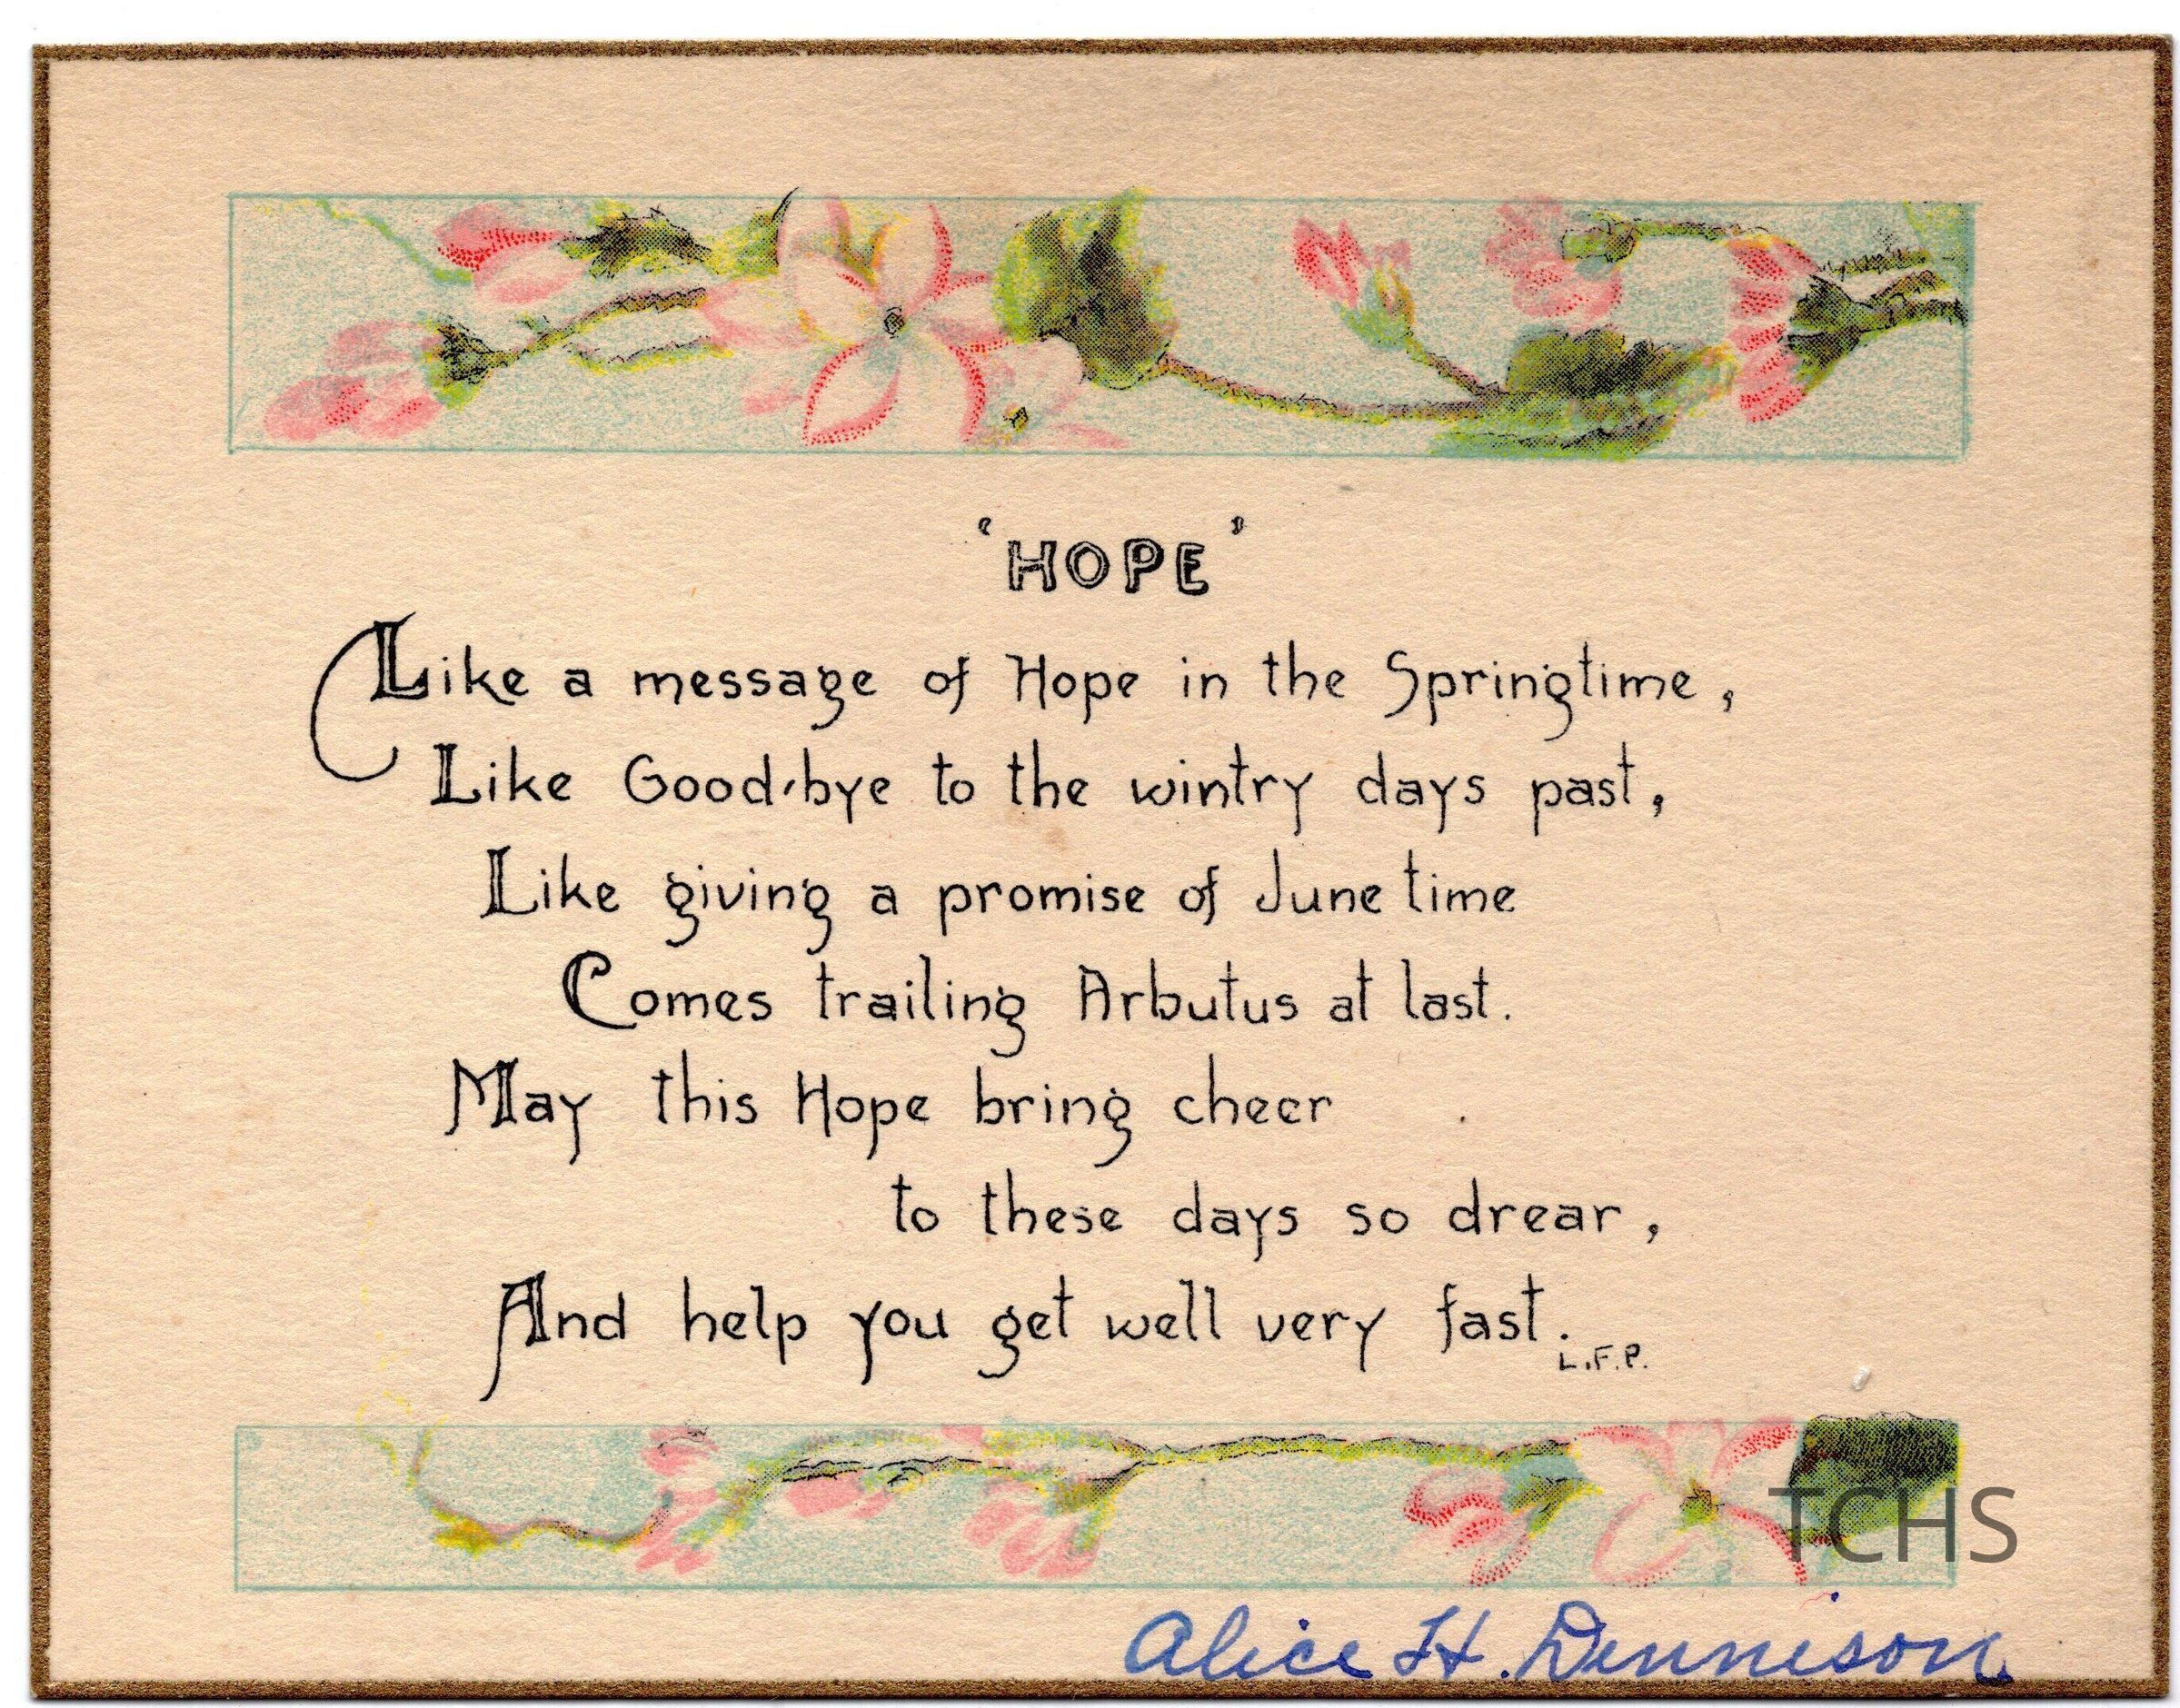 'HOPE'
Like a message of Hope in the Springtime,
Like Good-bye to the wintry days past,
Like giving a promise of June time
Comes trailing Arbutus at last.
May this Hope bring cheer
to these days so drear,
And help you get well very fast.
L.F.P.
TCHS
Alice H. Dennison